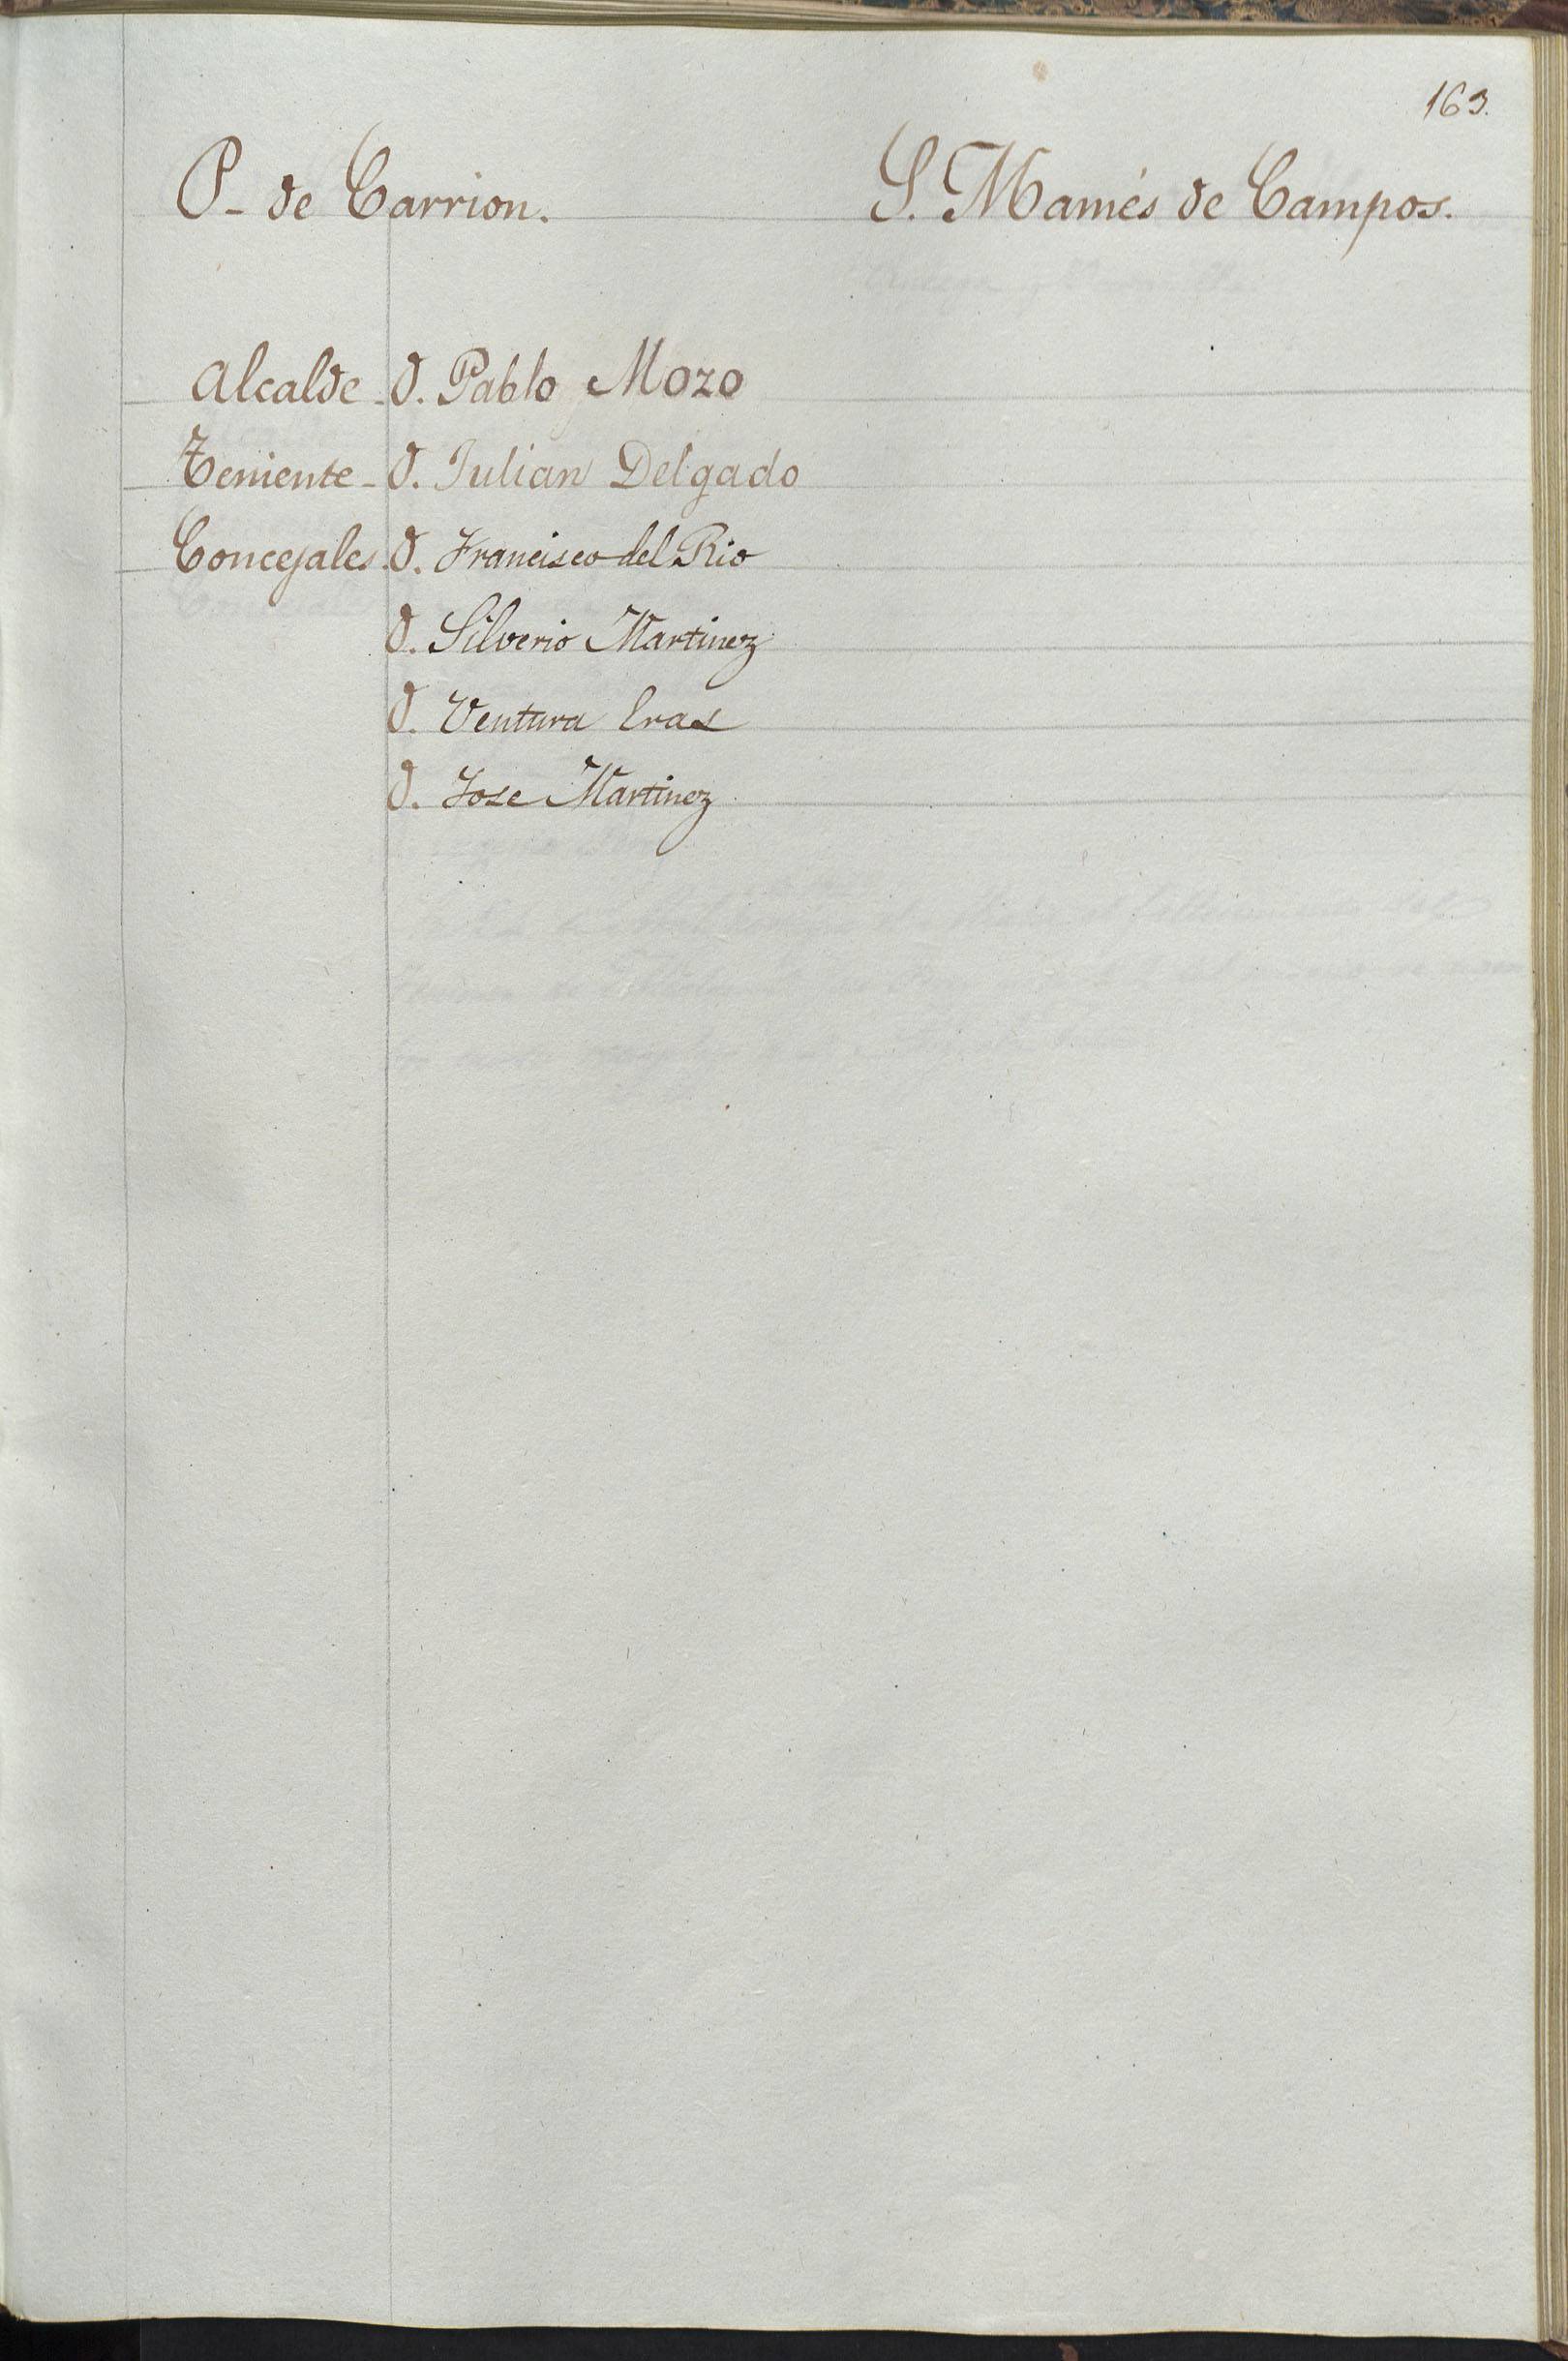 163.
P- de Carrion. S. Mamés de Campos.
Alcalde - D. Pablo Mozo
Teniente - D. Julian Delgado
Concejales. D. Francisco del Rio
D. Silverio Martinez
D. Ventura Eras
D. Jose Martinez